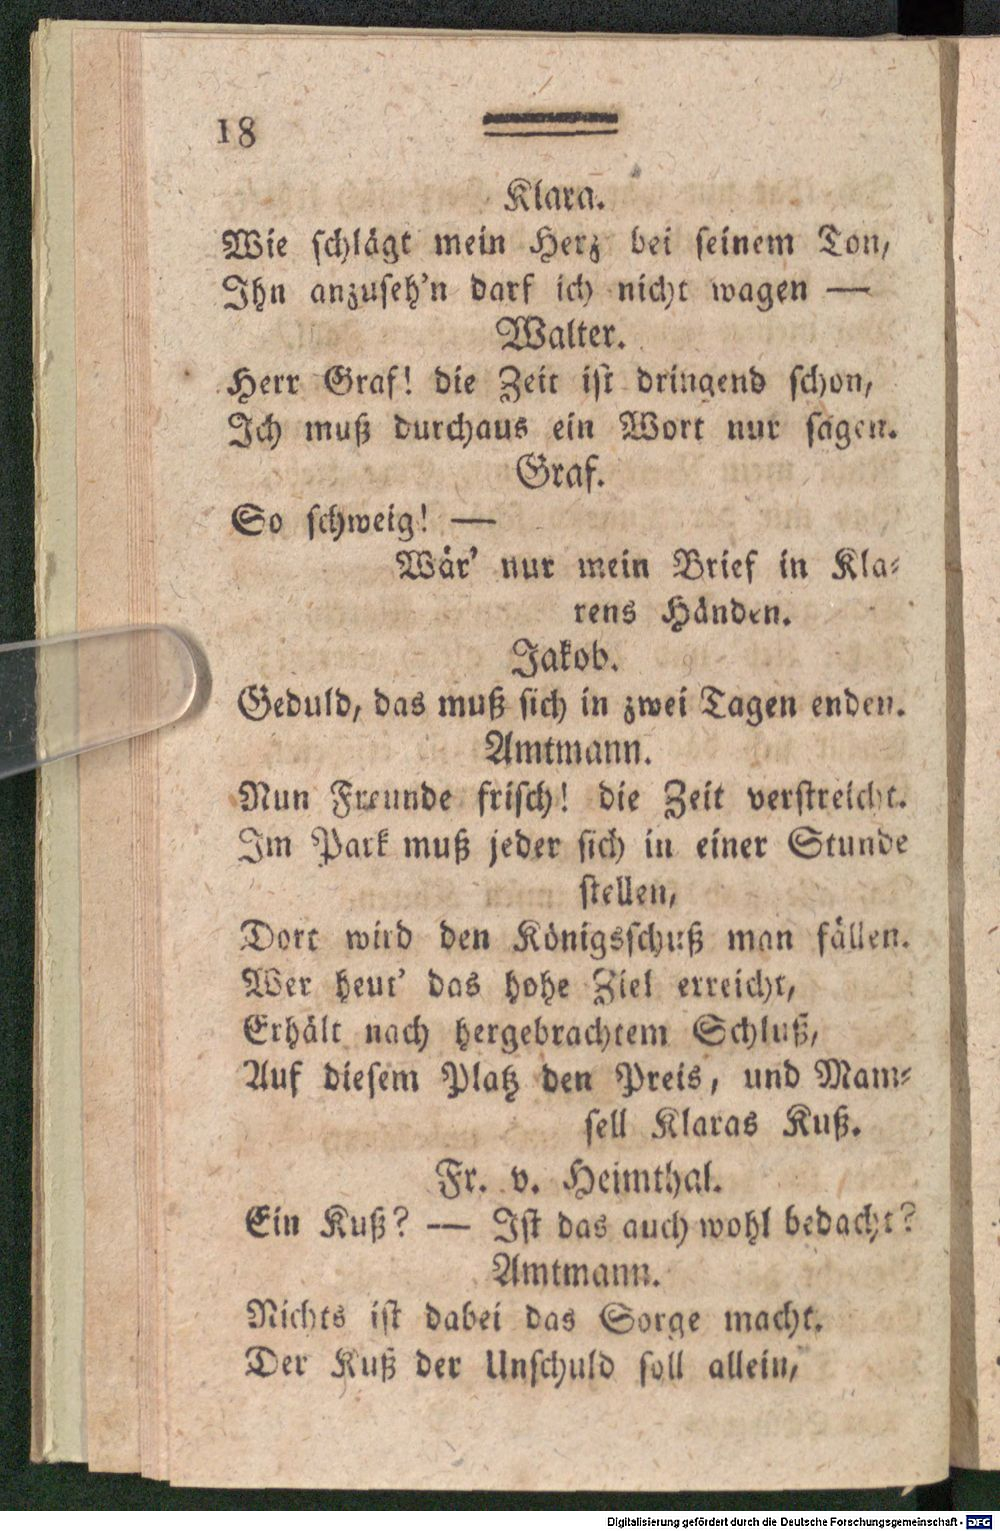 18
Klara.
Wie schlägt mein Herz bei seinem Ton,
Ihn anzuseh'n darf ich nicht wagen —
Walter.
Herr Graf! die Zeit ist dringend schon,
Ich muß durchaus ein Wort nur sagen.
Graf.
So schweig! —
Wär' nur mein Brief in Kla-
rens Händen.
Jakob.
Geduld, das muß sich in zwei Tagen enden.
Amtmann.
Nun Freunde frisch! die Zeit verstreicht.
Im Park muß jeder sich in einer Stunde
stellen,
Dort wird den Königsschuß man fällen.
Wer heut' das hohe Ziel erreicht,
Erhält nach hergebrachtem Schluß,
Auf diesem Platz den Preis, und Mam-
sell Klaras Kuß.
Fr. v. Heimthal.
Ein Kuß? — Ist das auch wohl bedacht?
Amtmann.
Nichts ist dabei das Sorge macht.
Der Kuß der Unschuld soll allein,
Digitalisierung gefördert durch die Deutsche Forschungsgemeinschaft - DFG